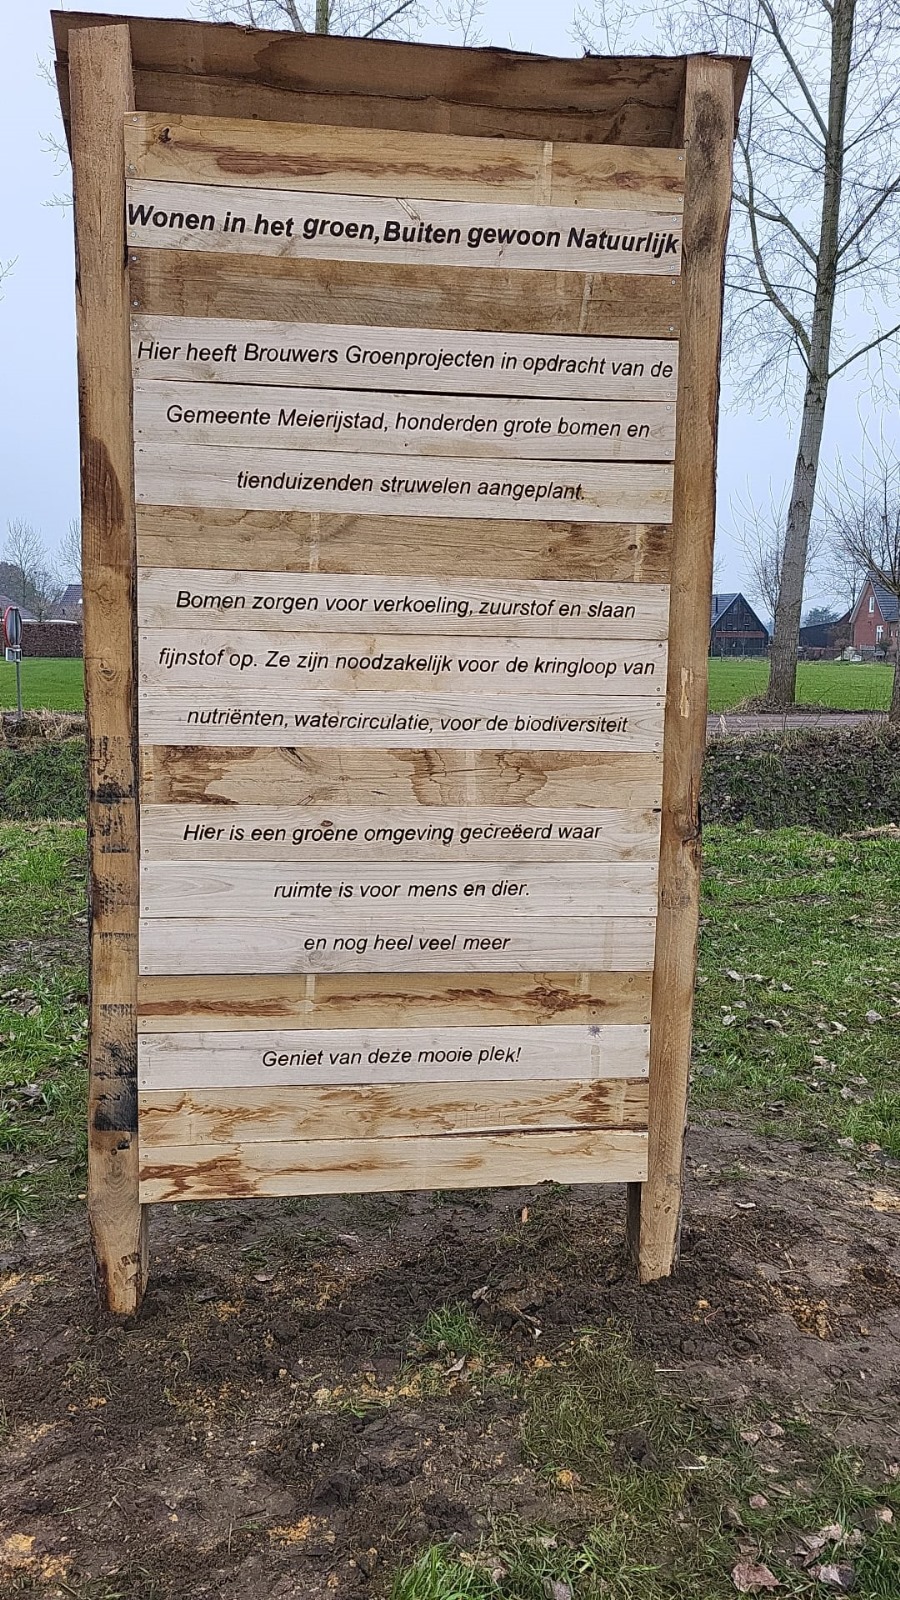 Wonen in het groen, Buiten gewoon Natuurlijk
Hier heeft Brouwers Groenprojecten in opdracht van de
Gemeente Meierijstad, honderden grote bomen en
tienduizenden struwelen aangeplant.
Bomen zorgen voor verkoeling, zuurstof en slaan
fijnstof op. Ze zijn noodzakelijk voor de kringloop van
nutriënten, watercirculatie, voor de biodiversiteit
Hier is een groene omgeving gecreëerd waar
ruimte is voor mens en dier.
en nog heel veel meer
Geniet van deze mooie plek!